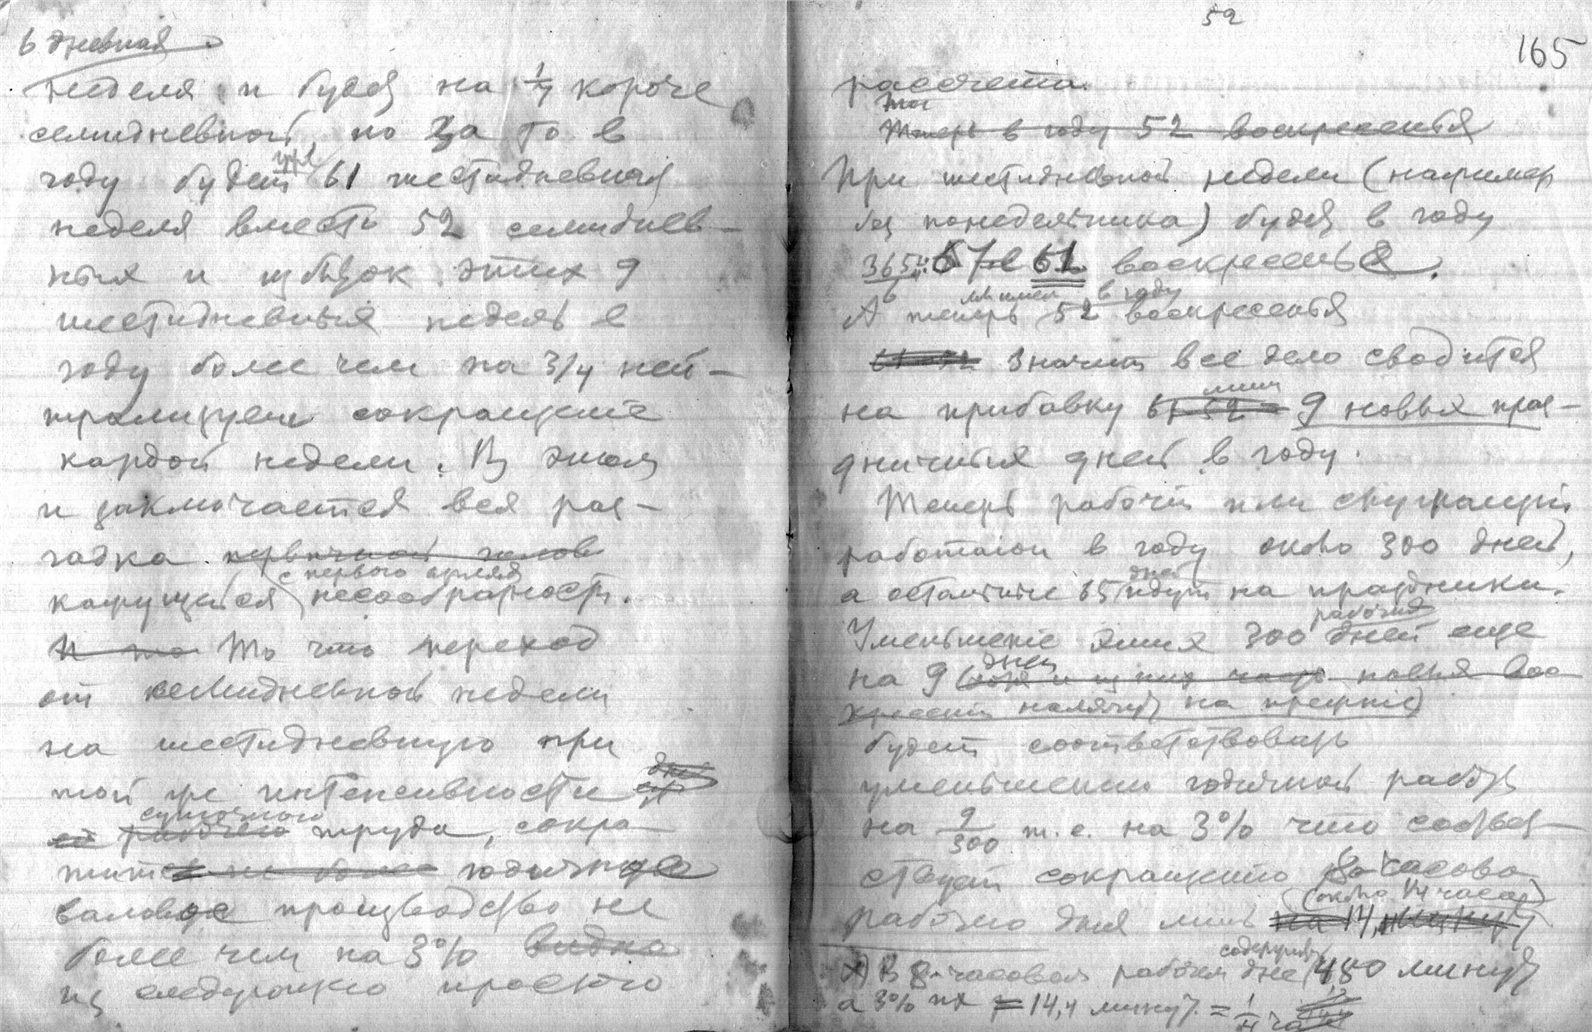 6 дневная
неделя и будет на 1/7 короче
семидневной, но за то в
году будет уже 61 шестидневная
неделя вместо 52 семиднев-
ных и избыток этих 9
шестидневных недель в
году более чем на 3/4 ней-
трализует сокращение
каждой недели. В этом
и заключается вся раз-
гадка
кажущейся с первого взгляда несообразности.
И то То что переход
от семидневной недели
на шестидневную при
той же интенсивности
суточного рабочего труда, сокра-
тит не более годичное
валовое производство не
более чем на 3% видно
из следующего простого
52
165
рассчета.
Теперь в году 52 воскресенья
При шестидневной неделе (например
без понедельника) будет в году
365:6 61 воскресенье.
А теперь мы имеем 52 в году воскресенья
61-52 Значит все дело сводится
на прибавку 61-52= лишь 9 новых праз-
дничных дней в году.
Теперь рабочий или служащий
работают в году около 300 дней,
а остальные 65 дней идут на праздники.
Уменьшение этих 300 рабочих дней еще
на 9 дней
будет соответствовать
уменьшению годичной работы
на 9/300 т.е. на 3% что соответ-
ствует сокращению 8-часового
рабочего дня лишь на 14, минут (около 1/4 часа)
х) В 8-часовом рабочем дне содержится 480 минут
а 3% их = 14,4 минут. = 1/4 часа